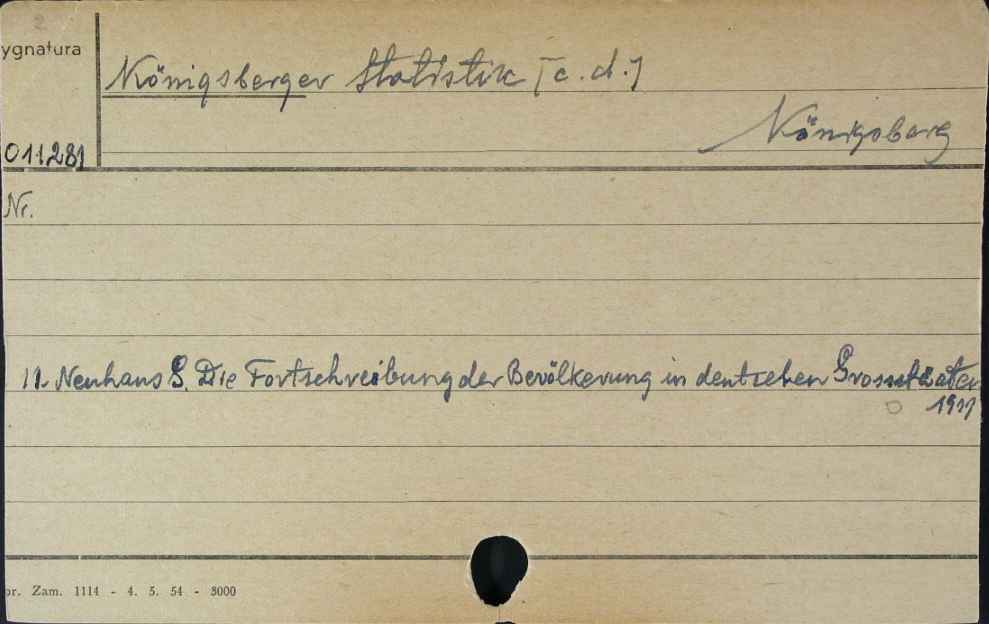 2
ygnatura
Königsberger Statistik [c. d.]
Königsberg
011281
Nr.
11. Neuhaus G. Die Fortschreibung der Bevölkerung in deutschen Grosstädten
1911
or. Zam. 1114 - 4. 5. 54 - 3000